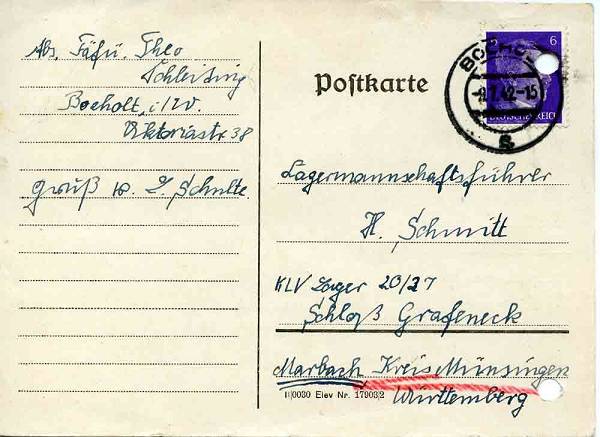 Abs. Fäfü. Theo
Schleising
Bocholt, i/W.
Viktoriastr. 38
Gruß w. L. Schulte.
Postkarte
6
BOCHOL
42-15
DEUTSCHES REICH
Lagermannschaftsführer
H. Schmitt
KLV Lager 20/27
Schloß Grafeneck
Marbach, Kreis Münsingen
Württemberg
0030 Elev Nr. 17903/2